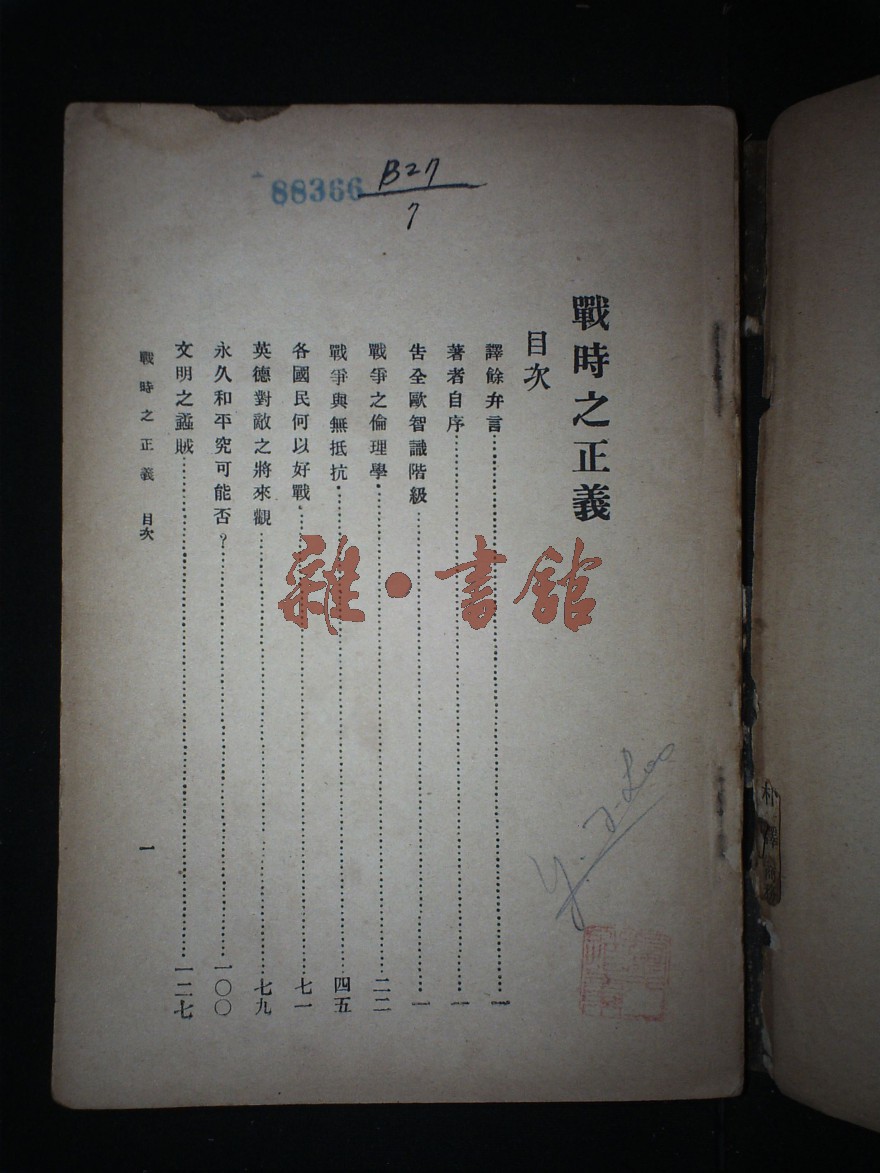 88366
B27
7
戰時之正義
目次
譯餘弁言……一
著者自序……一
告全歐智識階級……一
戰爭之倫理學……二二
戰爭與無抵抗……四五
各國民何以好戰……七一
英德對敵之將來觀……七九
永久和平究可能否？……一〇〇
文明之蟊賊……一二七
戰時之正義 目次
一
雜·書館